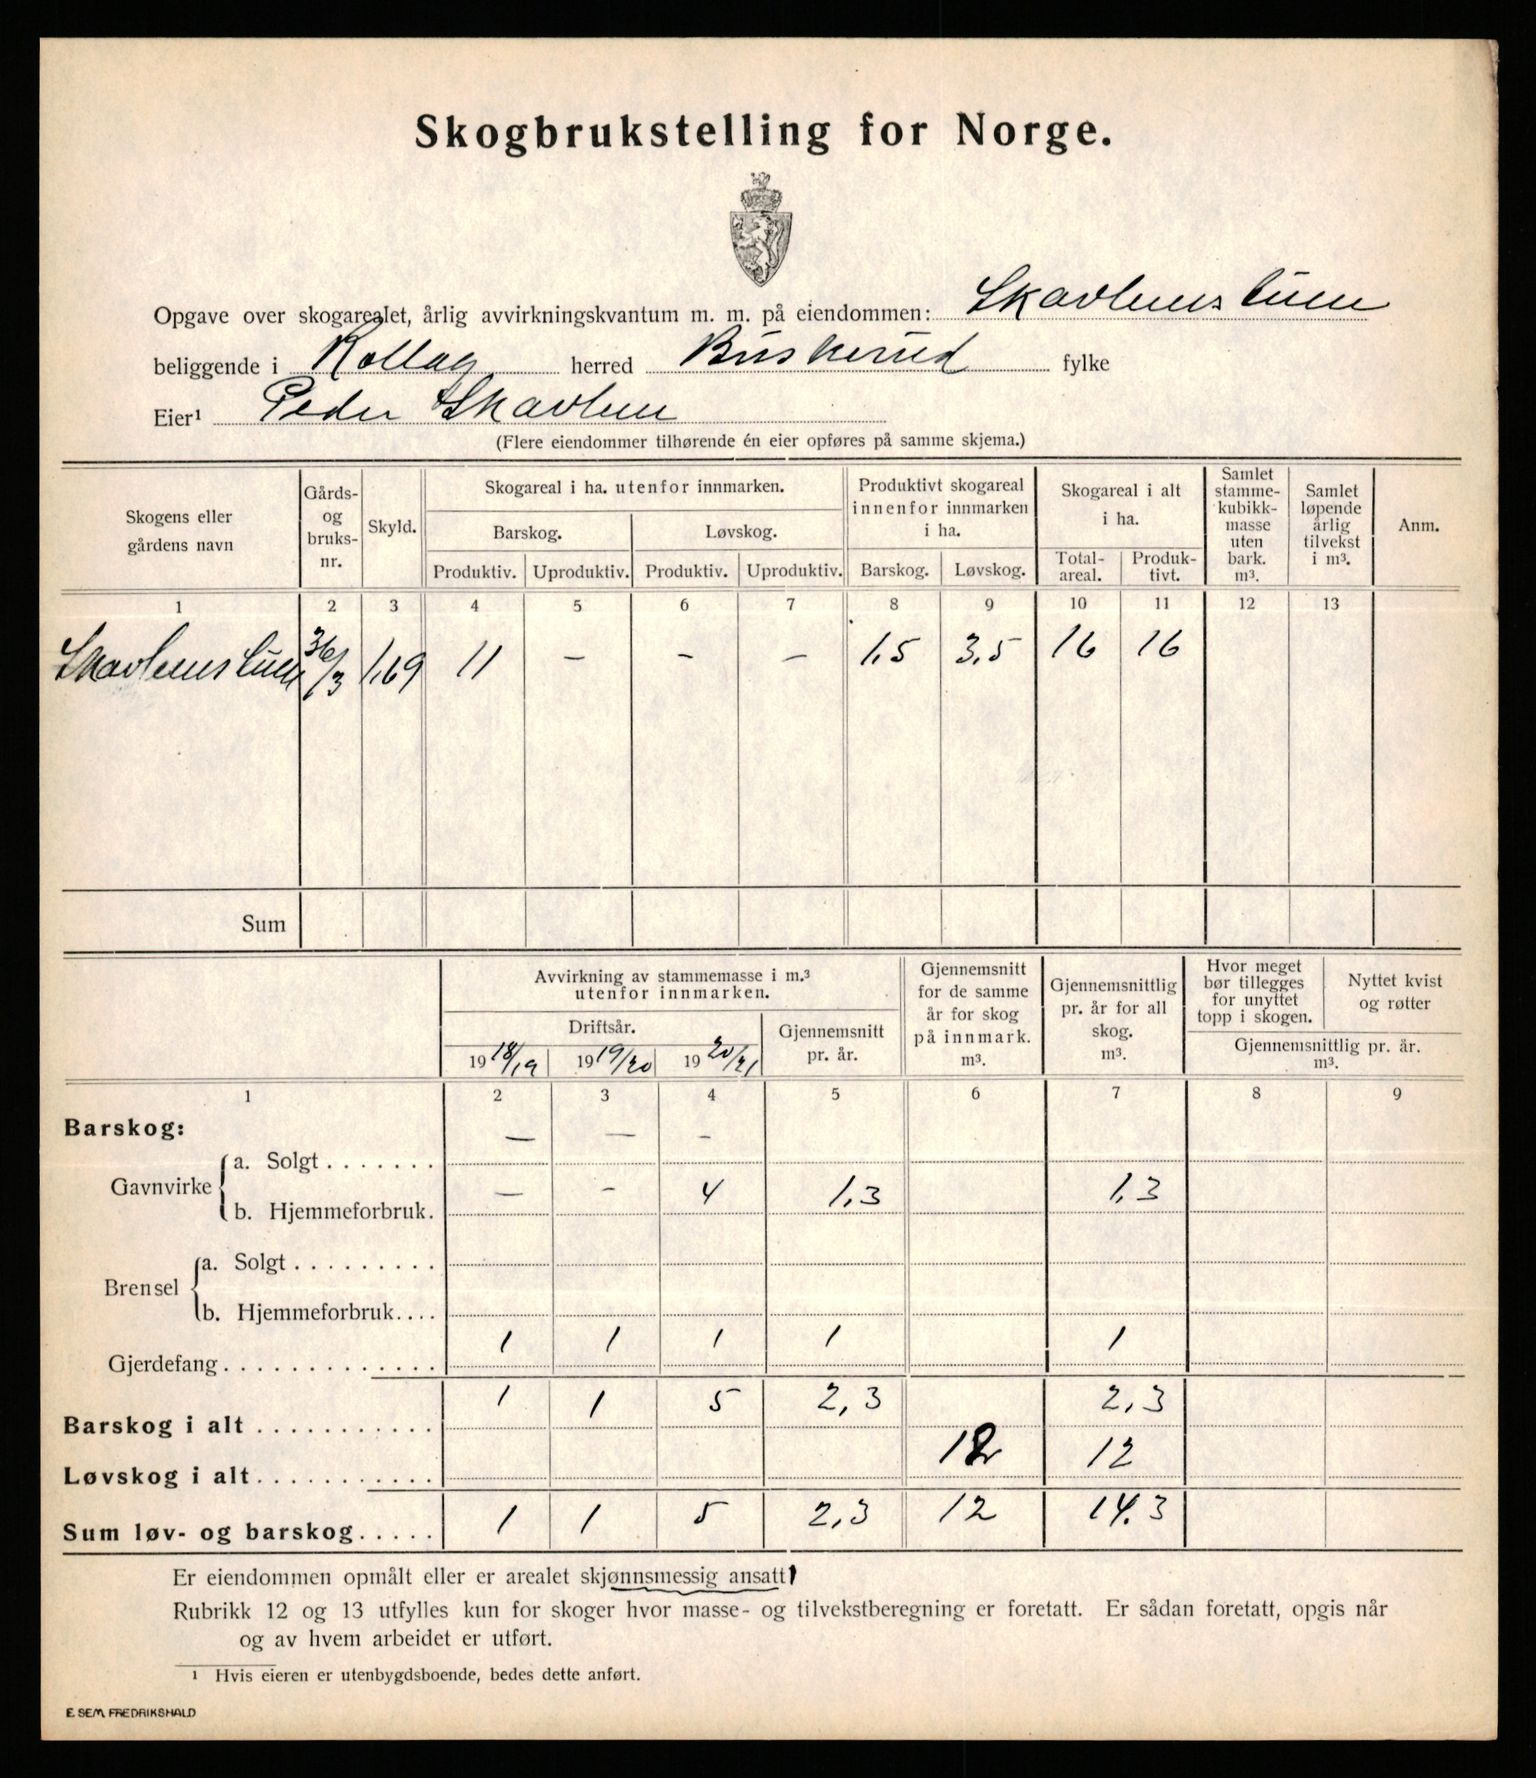 Skogbrukstelling for Norge.
Opgave over skogarealet, årlig avvirkningskvantum m. m. på eiendommen: Skavlens tuen
beliggende i Rollag herred Buskerud fylke
Eier¹ Peder Skavlen
(Flere eiendommer tilhørende én eier opføres på samme skjema.)
Skogens eller gårdens navn | Gårds- og bruks- nr. | Skyld. | Skogareal i ha. utenfor innmarken. | Produktivt skogareal innenfor innmarken i ha. | Skogareal i alt i ha. | Samlet stamme- kubikk- masse uten bark. m³. | Samlet løpende årlig tilvekst i m³. | Anm.
Barskog. | Løvskog.
Produktiv. | Uproduktiv. | Produktiv. | Uproduktiv. | Barskog. | Løvskog. | Total- areal. | Produk- tivt.
1 | 2 | 3 | 4 | 5 | 6 | 7 | 8 | 9 | 10 | 11 | 12 | 13
Skavlens tuen | 36/3 | 1,69 | 11 | – | – | – | 1,5 | 3,5 | 16 | 16
Sum
Avvirkning av stammemasse i m.³ utenfor innmarken. | Gjennemsnitt for de samme år for skog på innmark. m³. | Gjennemsnittlig pr. år for all skog. m³. | Hvor meget bør tillegges for unyttet topp i skogen. | Nyttet kvist og røtter
Driftsår. | Gjennemsnitt pr. år. | Gjennemsnittlig pr. år. m³.
1918/19 | 1919/20 | 1920/21
1 | 2 | 3 | 4 | 5 | 6 | 7 | 8 | 9
Barskog:
Gavnvirke { a. Solgt . . . . . . . | — | — | –
b. Hjemmeforbruk. | — | – | 4 | 1,3 | 1,3
Brensel { a. Solgt . . . . . . . . .
b. Hjemmeforbruk. . . .
Gjerdefang . . . . . . . . . . . . . | 1 | 1 | 1 | 1 | 1
Barskog i alt . . . . . . . . . . . | 1 | 1 | 5 | 2,3 | 2,3
Løvskog i alt . . . . . . . . . . . | 12 | 12
Sum løv- og barskog . . . . . | 1 | 1 | 5 | 2,3 | 12 | 14.3
Er eiendommen opmålt eller er arealet skjønnsmessig ansatt?
Rubrikk 12 og 13 utfylles kun for skoger hvor masse- og tilvekstberegning er foretatt. Er sådan foretatt, opgis når
og av hvem arbeidet er utført.
¹ Hvis eieren er utenbygdsboende, bedes dette anført.
E. SEM, FREDRIKSHALD